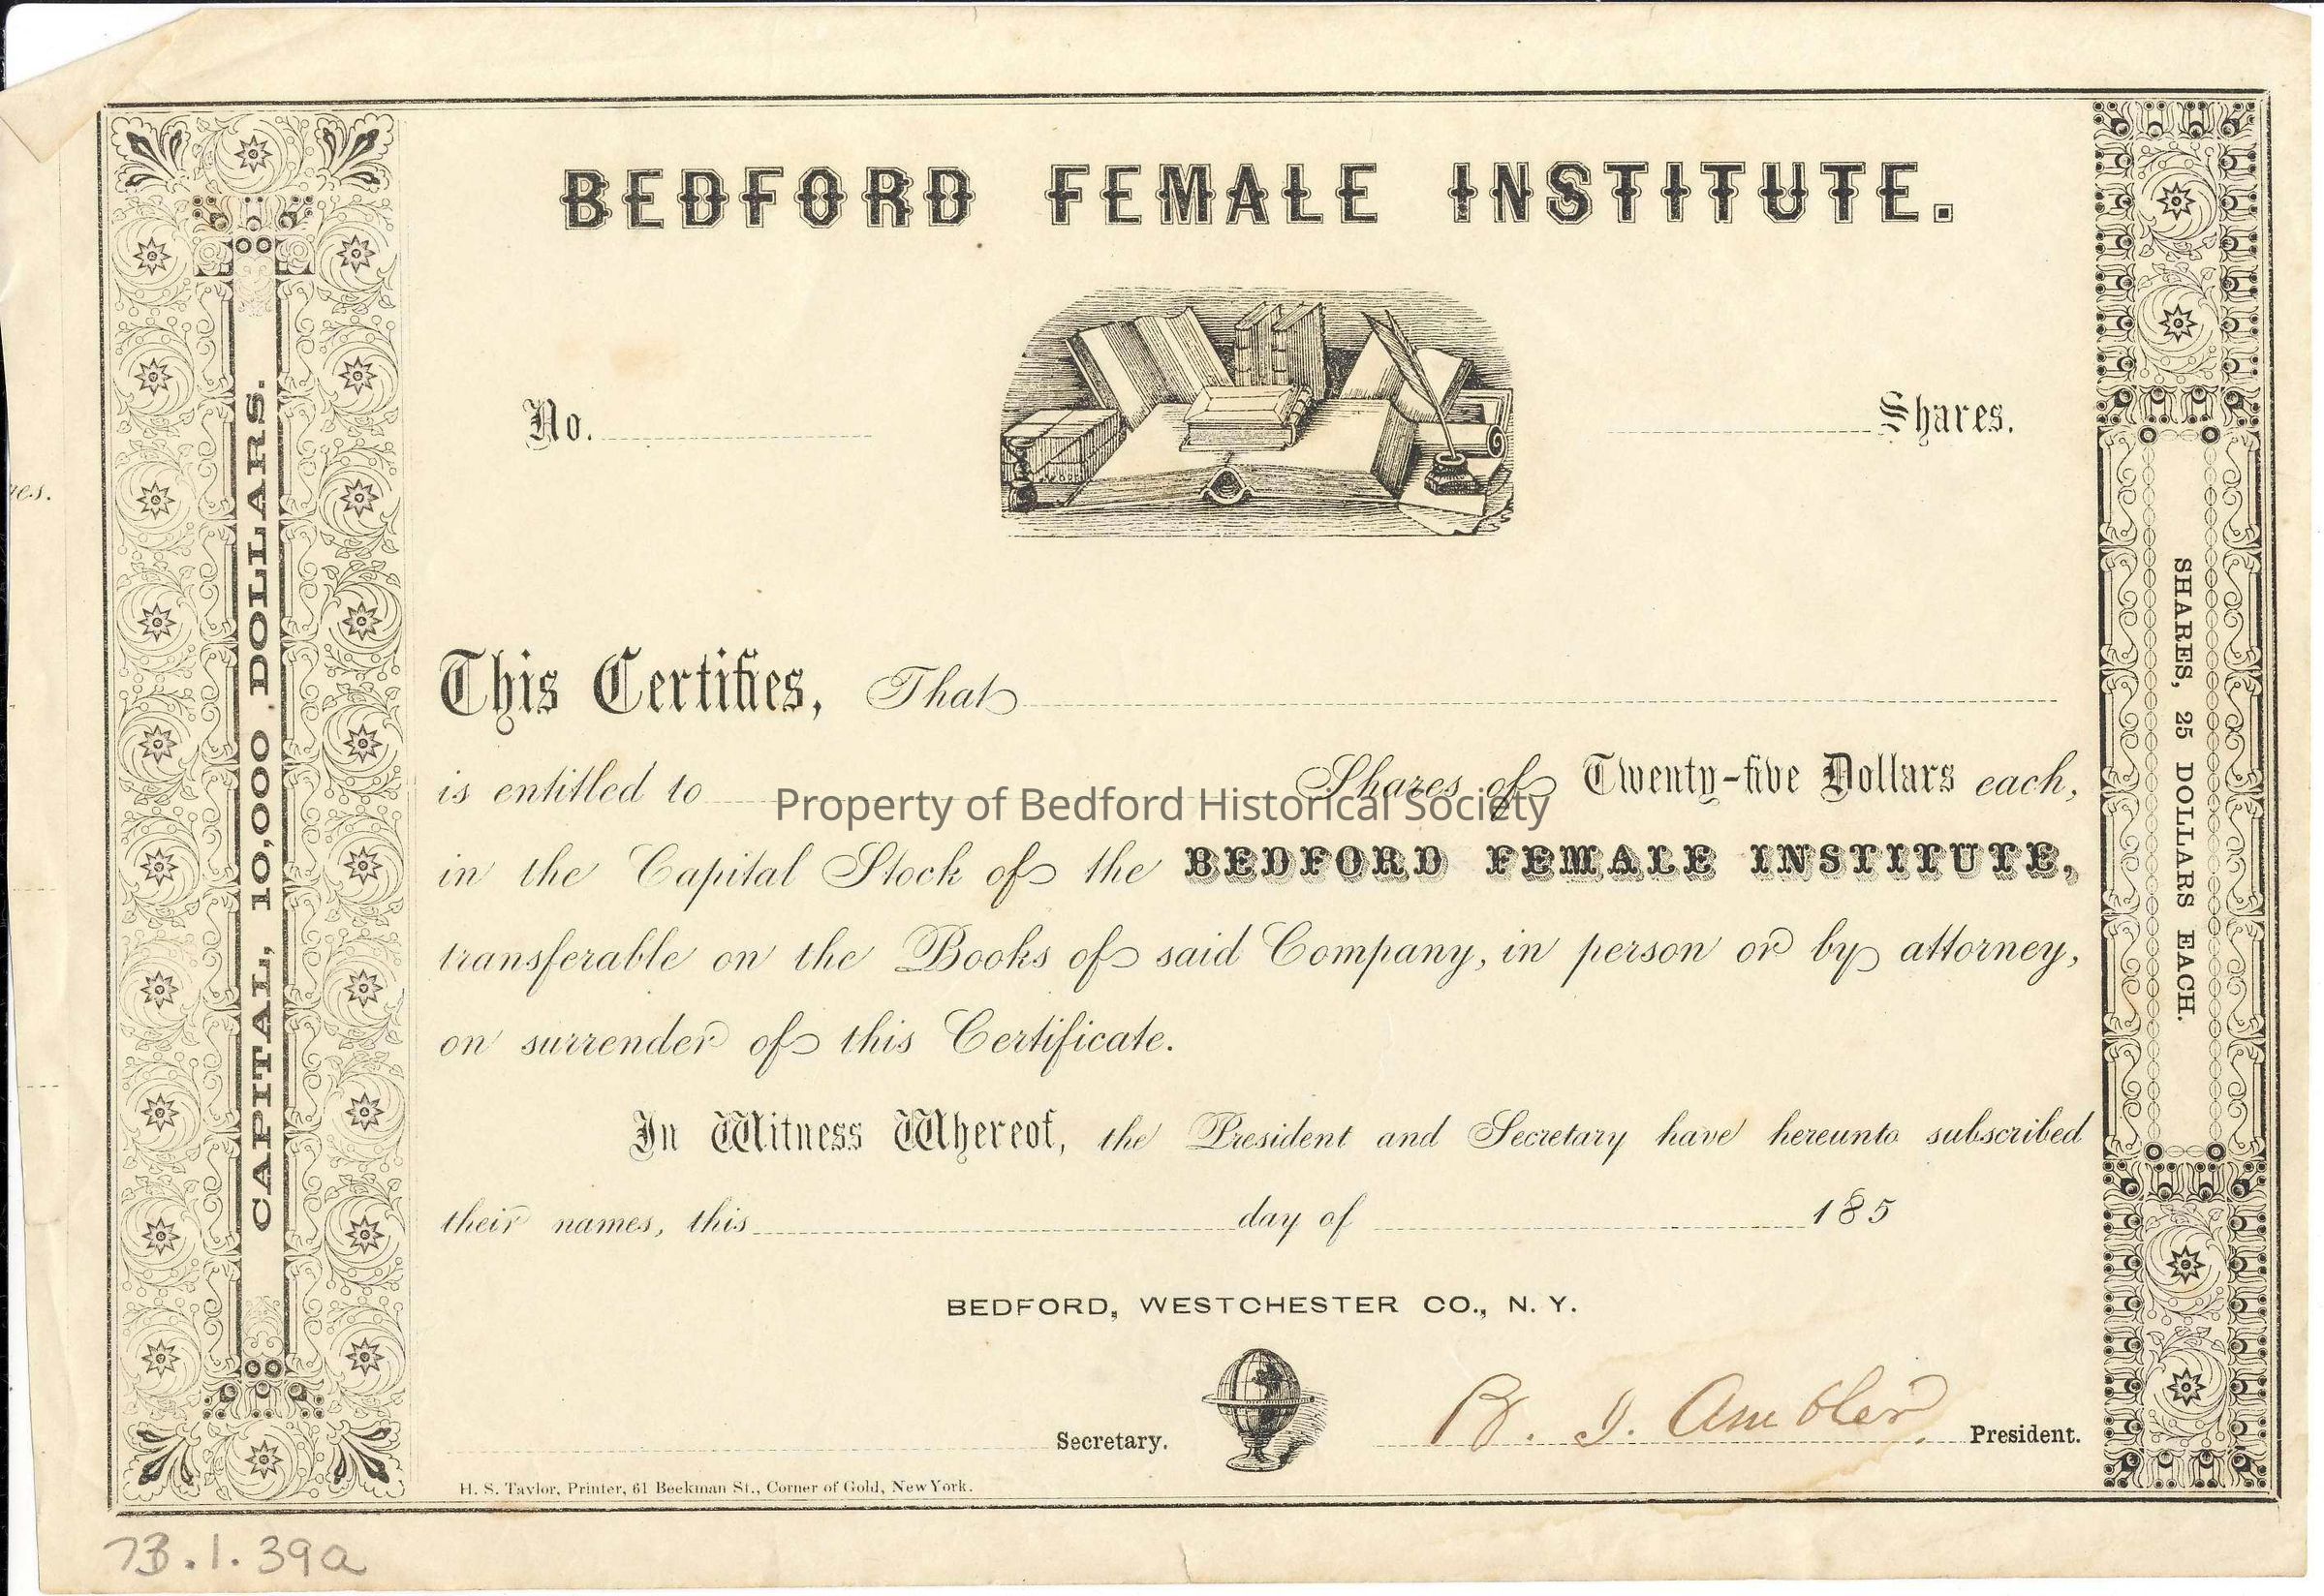 BEDFORD FEMALE INSTITUTE.
No.
Shares.
res.
CAPITAL, 10,000 DOLLARS.
SHARES, 25 DOLLARS EACH.
This Certifies, That
is entitled to Shares of Twenty-five Dollars each,
Property of Bedford Historical Society
in the Capital Stock of the BEDFORD FEMALE INSTITUTE,
transferable on the Books of said Company, in person or by attorney,
on surrender of this Certificate.
In Witness Whereof, the President and Secretary have hereunto subscribed
their names, this day of 185
BEDFORD, WESTCHESTER CO., N. Y.
Secretary. B. I. Ambler President.
H. S. Taylor, Printer, 61 Beekman St., Corner of Gold, New York.
73.1.39a